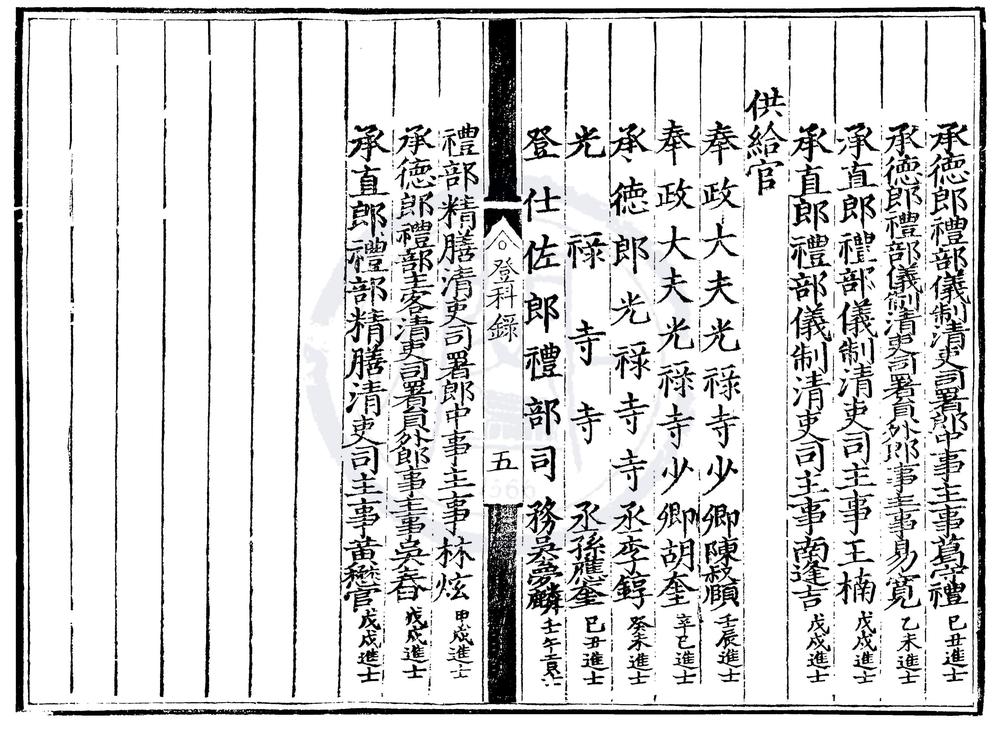 承德郎禮部儀制清吏司署郎中事主事葛守禮己丑進士
承德郎禮部儀制清吏司署員外郎事主事易寬乙未進士
承直郎禮部儀制清吏司主事王楠戊戌進士
承直郎禮部儀制清吏司主事南逢吉戊戌進士
供給官
奉政大夫光祿寺少卿陳叔頤壬辰進士
奉政大夫光祿寺少卿胡奎辛巳進士
承德郎光祿寺寺丞李錞癸未進士
光祿寺寺丞孫應奎己丑進士
登仕佐郎禮部司務吳夢麟壬午貢士
登科錄
五
禮部精膳清吏司署郎中事主事林炫甲戌進士
承德郎禮部主客清吏司署員外郎事主事吳春戊戌進士
承直郎禮部精膳清吏司主事黃懋官戊戌進士